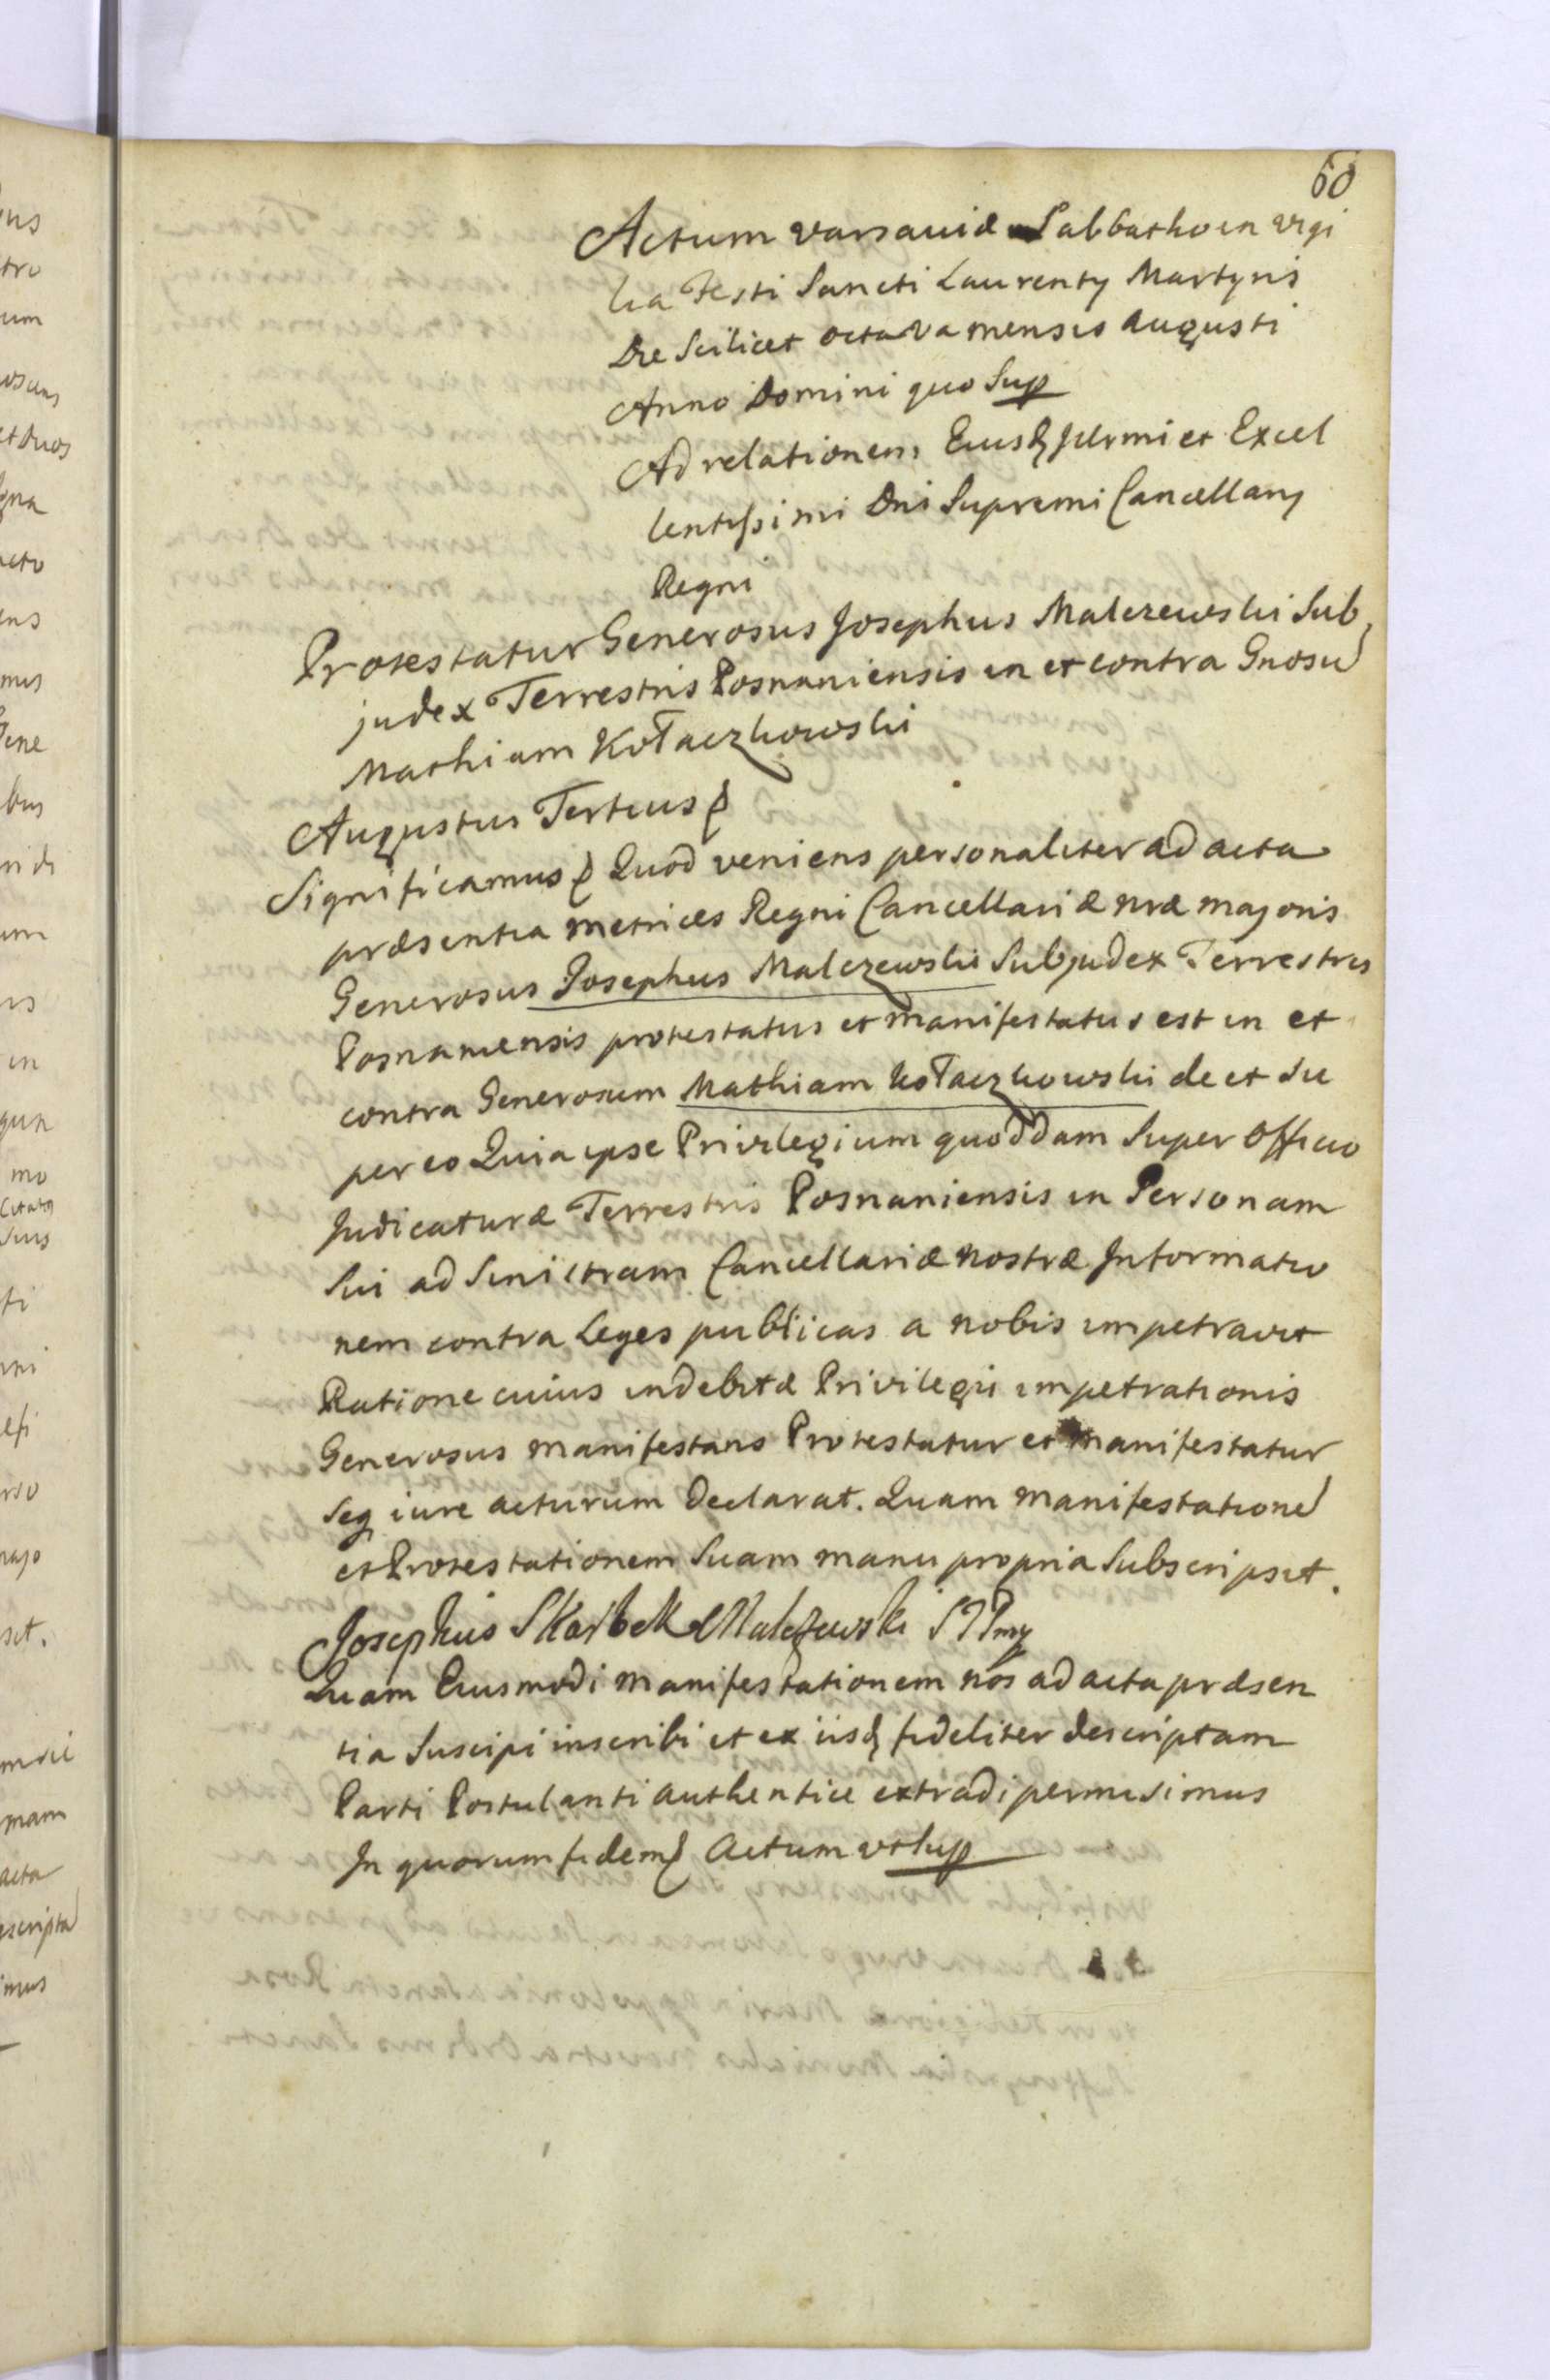 60
Actum Varsaviæ Sabbatho in Vigi
lia Festi Sancti Laurentÿ Martyris
Die Scilicet octava mensis Augusti
Anno Domini quo Sup
Ad relationem Eiusq Illrmi et Excel
lentissimi Dni Supremi Cancellarÿ
Regni
Protestatur Generosus Josephus Malczewski Sub
judex Terrestris Posnaniensis in et contra Gnosu
Mathiam Kołaczkowski
Augustus Tertius
Significamus Quod veniens personaliter ad acta
præsentia metrices Regni Cancellariæ nræ majoris
Generosus Josephus Malczewski Subjudex Terrestris
Posnaniensis protestatus et manifestatus est in et
contra Generosum Mathiam Kołaczkowski de et su
per eo Quia ipse Privilegium quoddam Super Officio
Judicaturæ Terrestris Posnaniensis in Personam
Sui ad Sinistram Cancellariæ nostræ Informatio
nem contra Leges publicas a nobis impetravit
Ratione cuius indebitæ Privilegii impetrationis
Generosus manifestans Protestatur et manifestatur
seq iure acturum Declarat. Quam manifestatione
et Protestationem Suam manu propria Subscripsit.
Josephus Skarbek Malczewski S T P mp
Quam Eiusmodi manifestationem nos ad acta præsen
tia Suscipi inscribi et ex iisq fideliter descriptam
Parti Postulanti authentice extradi permisimus
In quorum fidem Actum ut sup